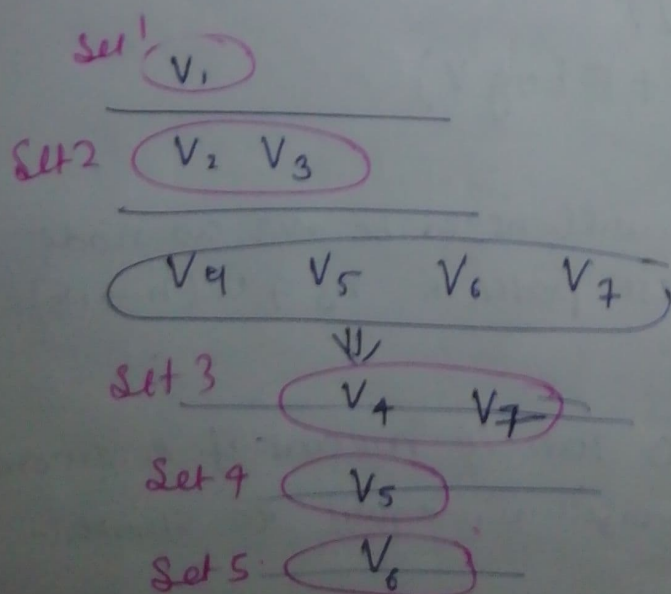 Set 1 V₁
Set 2 V₂ V₃
V4 V₅ V₆ V₇
⇓
Set 3 V₄ V₇
Set 4 V₅
Set 5 V₆